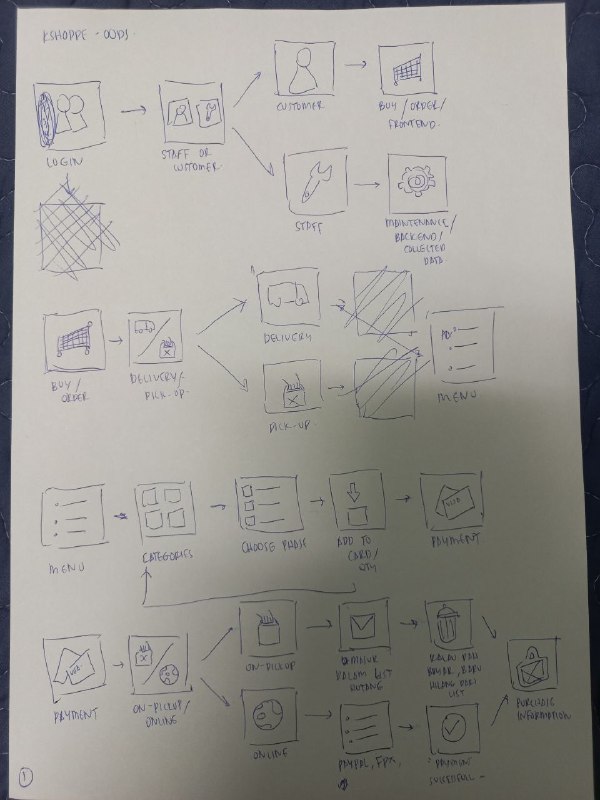 KSHOPPE - OODJ.
LOGIN
STAFF OR
CUSTOMER.
CUSTOMER
BUY / ORDER /
FRONTEND.
STAFF
MAINTENANCE/
BACKEND/
COLLECTED
DATA
BUY /
ORDER
DELIVERY/
PICK-UP.
DELIVERY
PICK-UP.
MENU
MENU
CATEGORIES
CHOOSE PHASE
ADD TO
CARD/
QTY
PAYMENT
PAYMENT
ON-PICKUP/
ONLINE
ON-PICKUP
DALAM LIST
HUTANG
KALAU DAH
BAYAR, BARU
HILANG DARI
LIST
PURCHASE
INFORMATION
ONLINE
PAYPAL, FPX,
PAYMENT
SUCCESSFULL
1